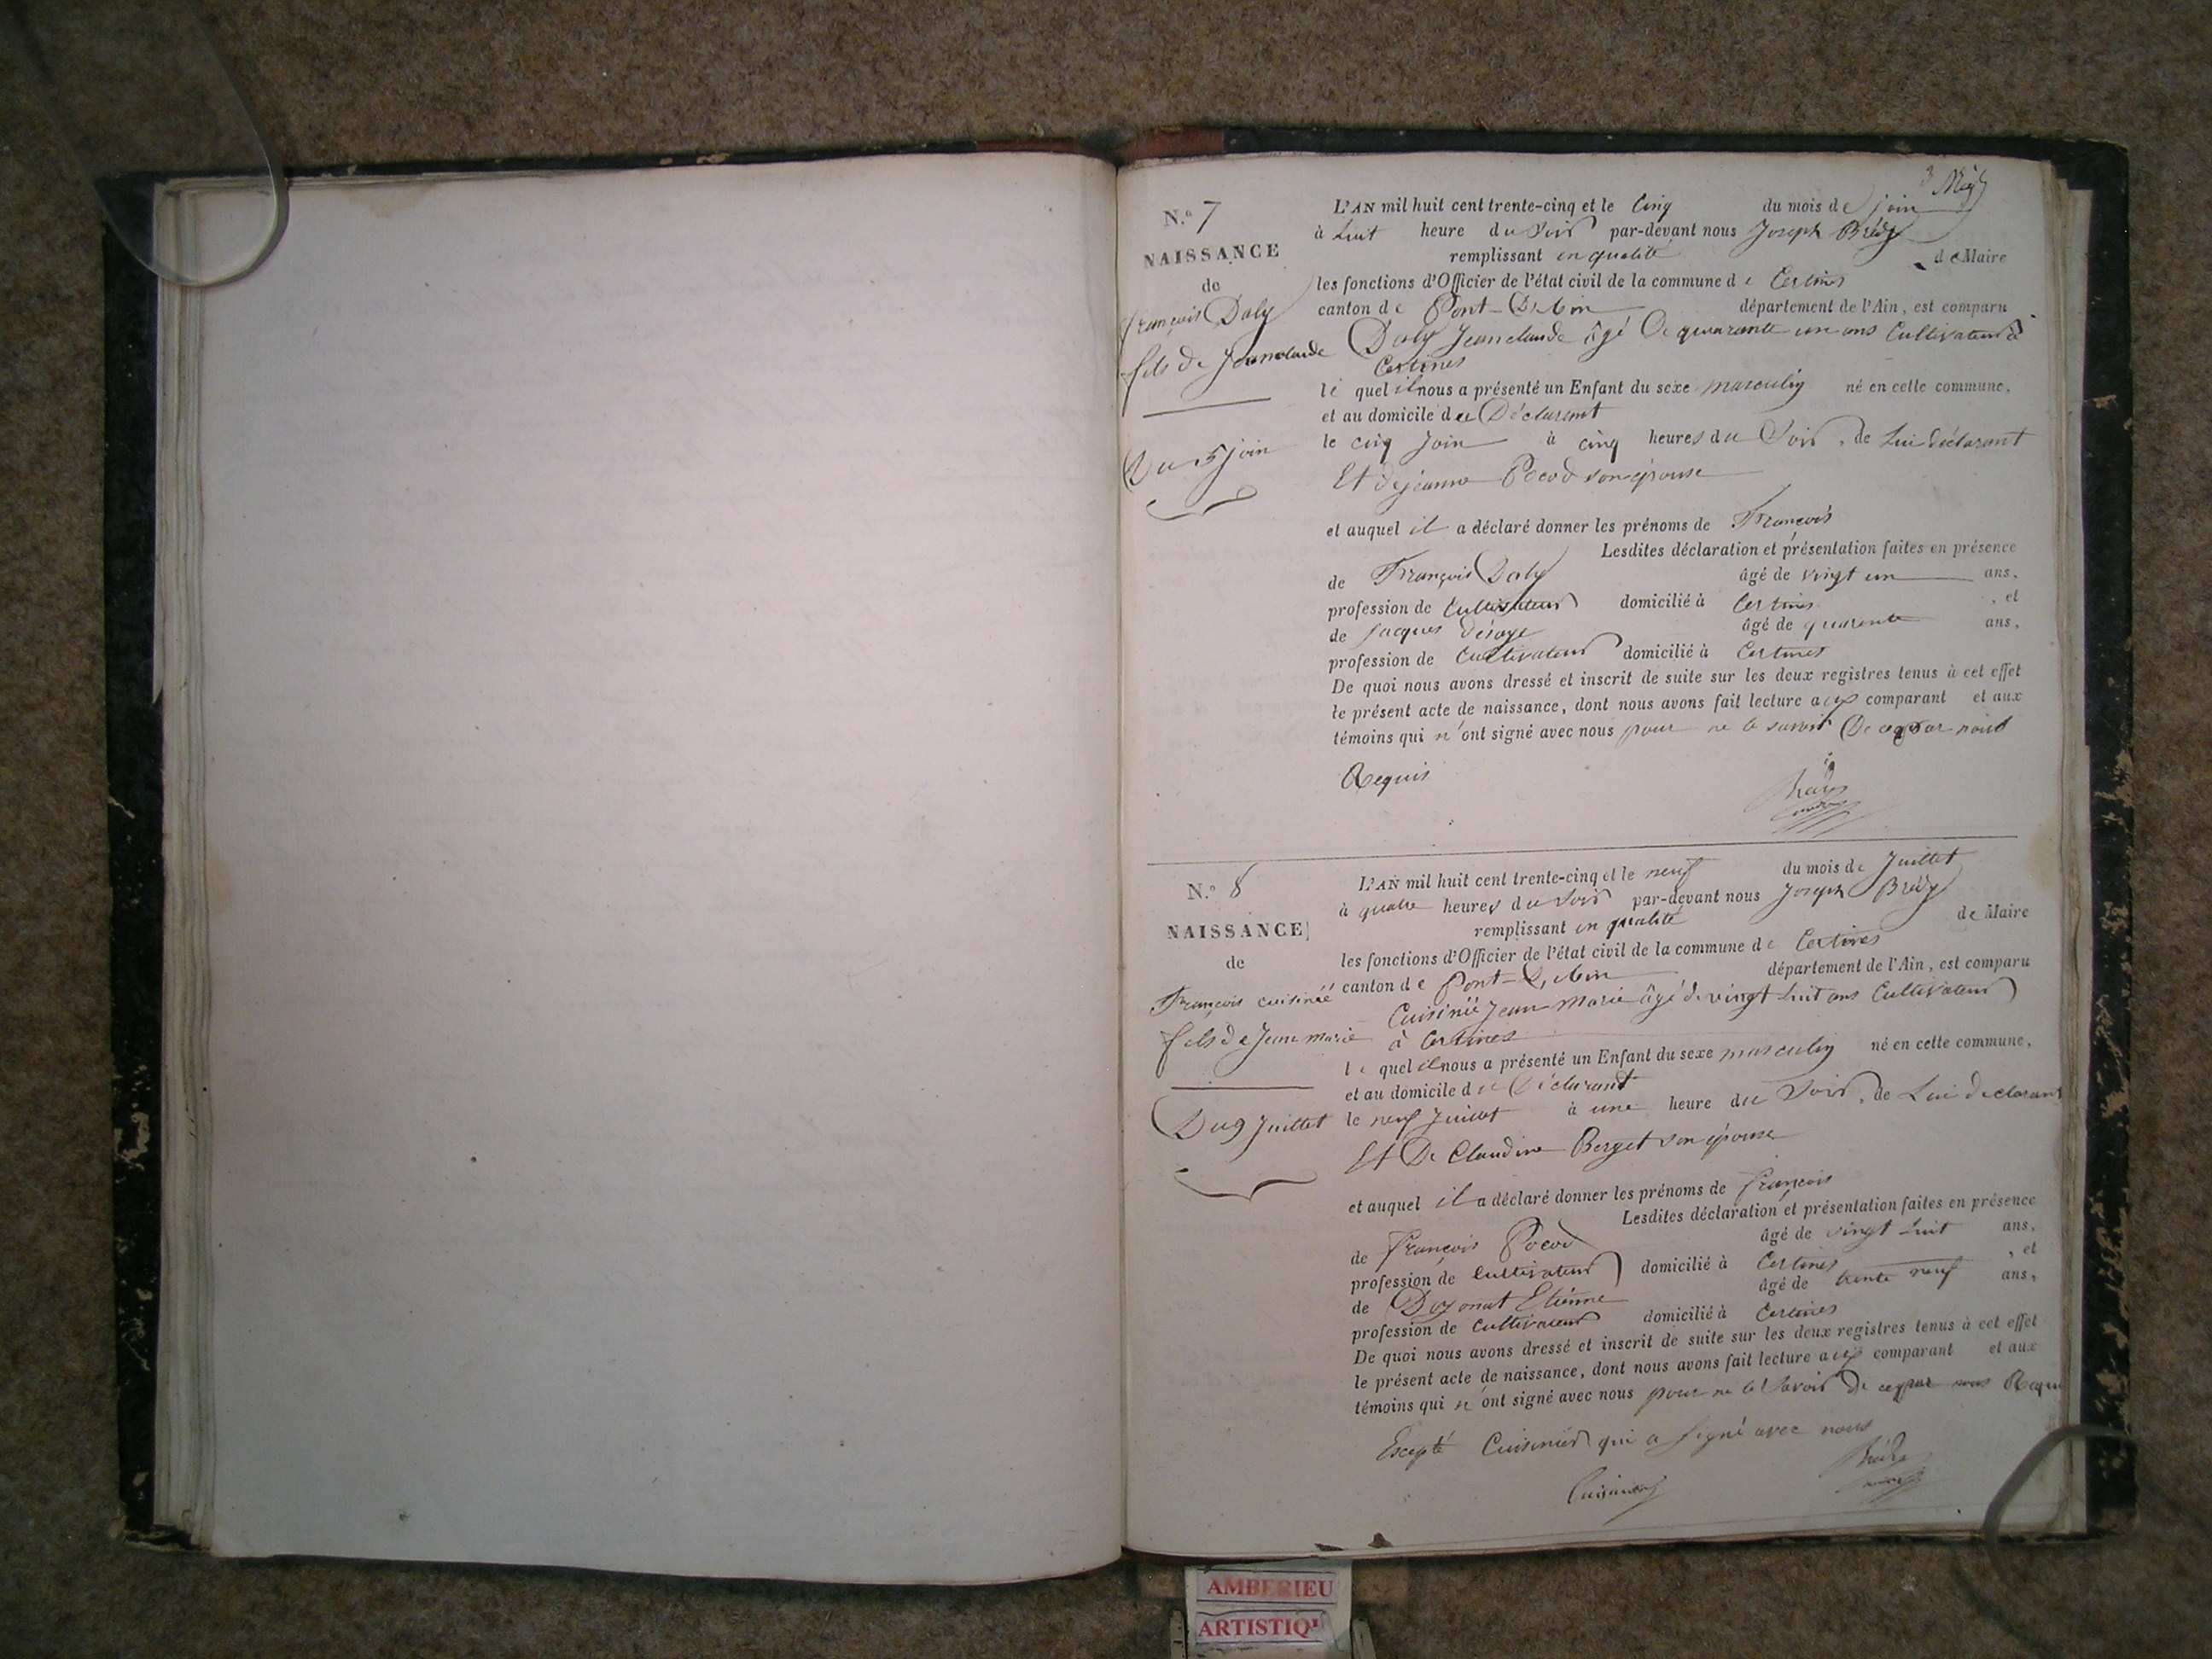 N.o 7
NAISSANCE
de
françois Daly
fils de Jeanclaude
Du 5 join
3
L'AN mil huit cent trente-cinq et le Cinq du mois de join
à huit heure du Soir par-devant nous Joseph Brédy
remplissant en qualité de Maire
les fonctions d'Officier de l'état civil de la commune de Certines
canton de Pont-D'Ain département de l'Ain, est comparu
Daly Jeanclaude âgé De quarante un ans Cultivateur à
Certines
le quel il nous a présenté un Enfant du sexe masculin né en cette commune,
et au domicile du Déclarant
le cinq Join à cinq heures du Soir, de Lui déclarant
Et de jeanne Pocod son épouse
et auquel il a déclaré donner les prénoms de François
Lesdites déclaration et présentation faites en présence
de François Daly âgé de vingt un ans,
profession de Cultivateur domicilié à Certines, et
de Jacques âgé de quarente ans,
profession de Cultivateur domicilié à Certines
De quoi nous avons dressé et inscrit de suite sur les deux registres tenus à cet effet
le présent acte de naissance, dont nous avons fait lecture aux comparant et aux
témoins qui n'ont signé avec nous pour ne le savoir De ce par nous
Requis
N.o 8
NAISSANCE
de
François cuisinéé
fils de Jean marie
Du 9 Juillet
L'AN mil huit cent trente-cinq et le neuf du mois de Juillet
à quatre heures du Soir par-devant nous Joseph Brédy
remplissant en qualité de Maire
les fonctions d'Officier de l'état civil de la commune de Certines
canton de Pont-D'Ain département de l'Ain, est comparu
Cuisinéé Jean Marie âgé de vingt huit ans Cultivateur
à Certines
le quel il nous a présenté un Enfant du sexe masculin né en cette commune,
et au domicile du Déclarant
le neuf Juillet à une heure du Soir, de Lui declarant
Et De Claudine Berget son épouse
et auquel il a déclaré donner les prénoms de françois
Lesdites déclaration et présentation faites en présence
de François Pocod âgé de vingt huit ans,
profession de Cultivateur domicilié à Certines, et
de Etienne âgé de trente neuf ans,
profession de Cultivateur domicilié à Certines
De quoi nous avons dressé et inscrit de suite sur les deux registres tenus à cet effet
le présent acte de naissance, dont nous avons fait lecture aux comparant et aux
témoins qui n'ont signé avec nous pour ne le Savoir De ce par nous Requi
Excepté Cuisinier qui a signé avec nous
AMBERIEU
ARTISTIQ